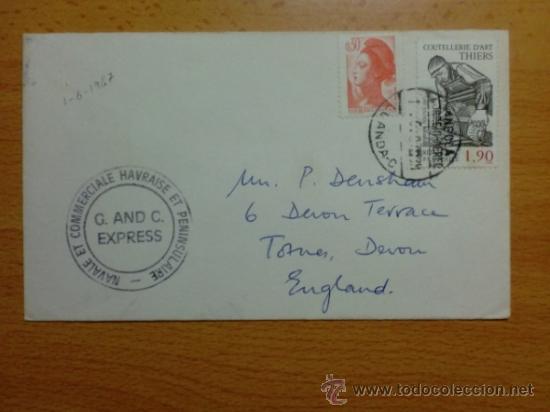 1-6-1967
0,50
COUTELLERIE D'ART
THIERS
1,90
NAVALE ET COMMERCIALE HAVRAISE ET PENINSULAIRE
G. AND C.
EXPRESS
Mr. P. Densham
6 Devon Terrace
Totnes, Devon
England.
www.todocoleccion.net